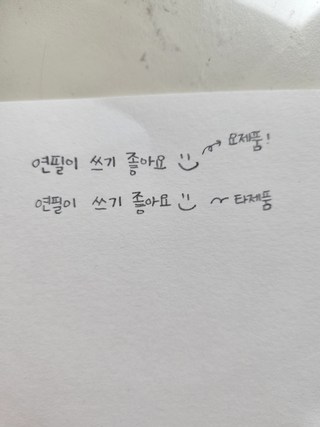 연필이 쓰기 좋아요 요제품!
연필이 쓰기 좋아요 타제품